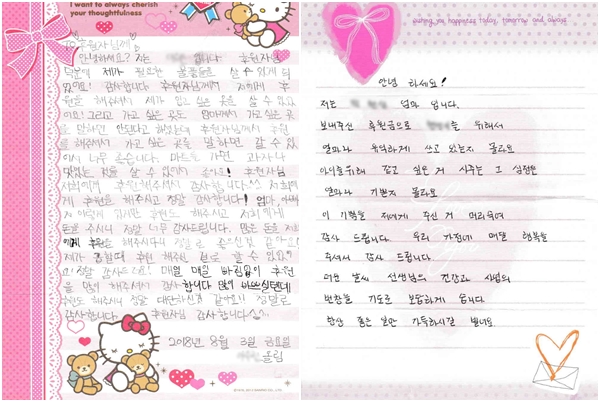 I want to always cherish
your thoughtfulness
TO. 후원자님께♡
안녕하세요? 저는 입니다. 후원자님
덕분에 제가 필요한 물품들을 살 수 있게 되
었어요! 감사합니다. 후원자님께서 저희에게 후
원을 해주셔서 제가 갖고 싶은 것을 살 수 있었
어요! 그리고 가고 싶은 곳도 엄마께서 가고 싶은 곳
을 말하면 안된다고 해주셨는데 후원자님께서 후원
를 해주셔서 가고 싶은 곳을 말하면 갈 수 있
어서 너무 좋습니다. 마트를 가면 과자나
맛있는 것을 살 수 있어서 좋아요! 후원자님
저희에게 후원해주셔서 감사합니다. 저희에
게 후원을 해주시고 정말 감사합니다! 엄마, 아빠
후도 주시고 정말 너무 감사드립니다. 많은 돈을 저희
에게 후원을 해주시다니 정말로
고! 정말 감사드려요! 매일 매일 후원
을 많이 해주셔서 감사합니다 많이 바쁘실텐데
후원도 해주시니 정말 대단하신것 같아요!! 정말로
감사합니다. 후원자님 감사합니다
2018년 8월 3일 금요일
올림
wishing you happiness today, tomorrow and always
안녕 하세요!
저는 엄마 입니다.
보내주신 후원금으로 을 위해서
얼마나 유익하게 쓰고 있는지 몰라요
아이들위해 갖고 싶은 거 사주는 그 심정은
얼마나 기쁜지 몰라요
이 기쁨을 저에게 주신 거 머리숙여
감사 드립니다. 우리 가정에 매달 행복을
주셔서 감사 드립니다.
더운 날씨 선생님의 건강과 사업의
번창을 기도로 보답하게 습니다
항상 좋은 일만 가득하시길 빕니다